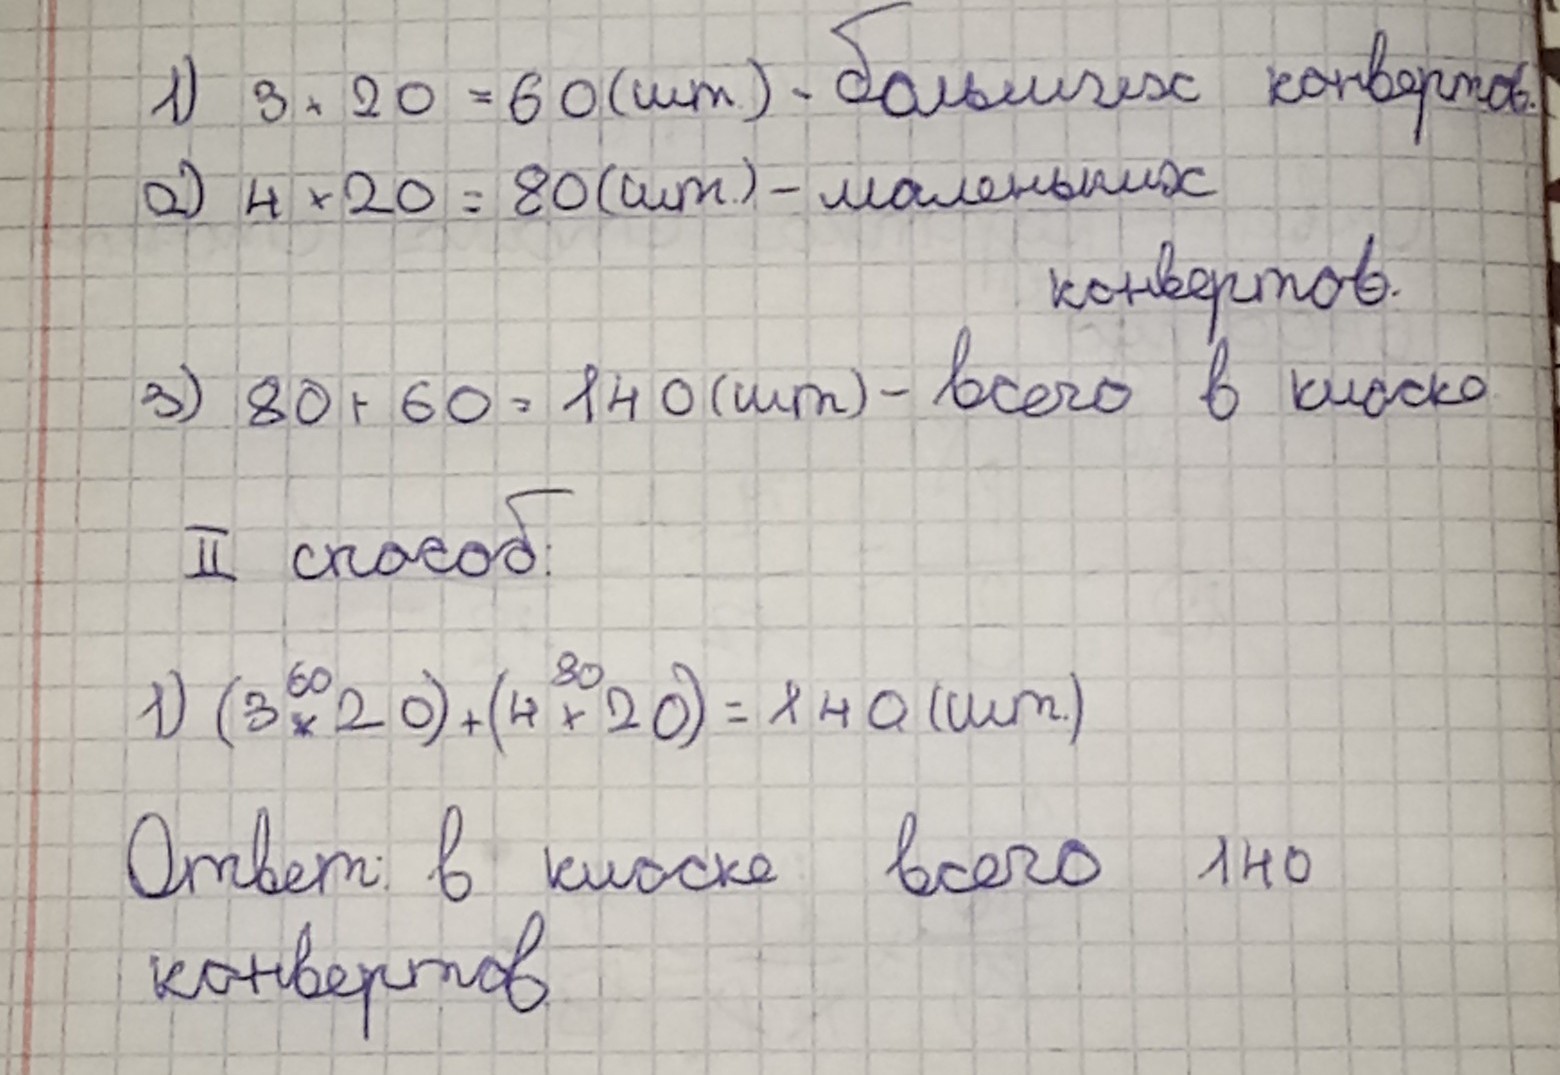 1) 3 × 20 = 60 (шт.) - больших конвертов.
2) 4 × 20 = 80 (шт.) - маленьких
конвертов.
3) 80 + 60 = 140 (шт) - всего в киоске
II способ:
60 80
1) (3 × 20) + (4 × 20) = 140 (шт.)
Ответ: в киоске всего 140
конвертов.